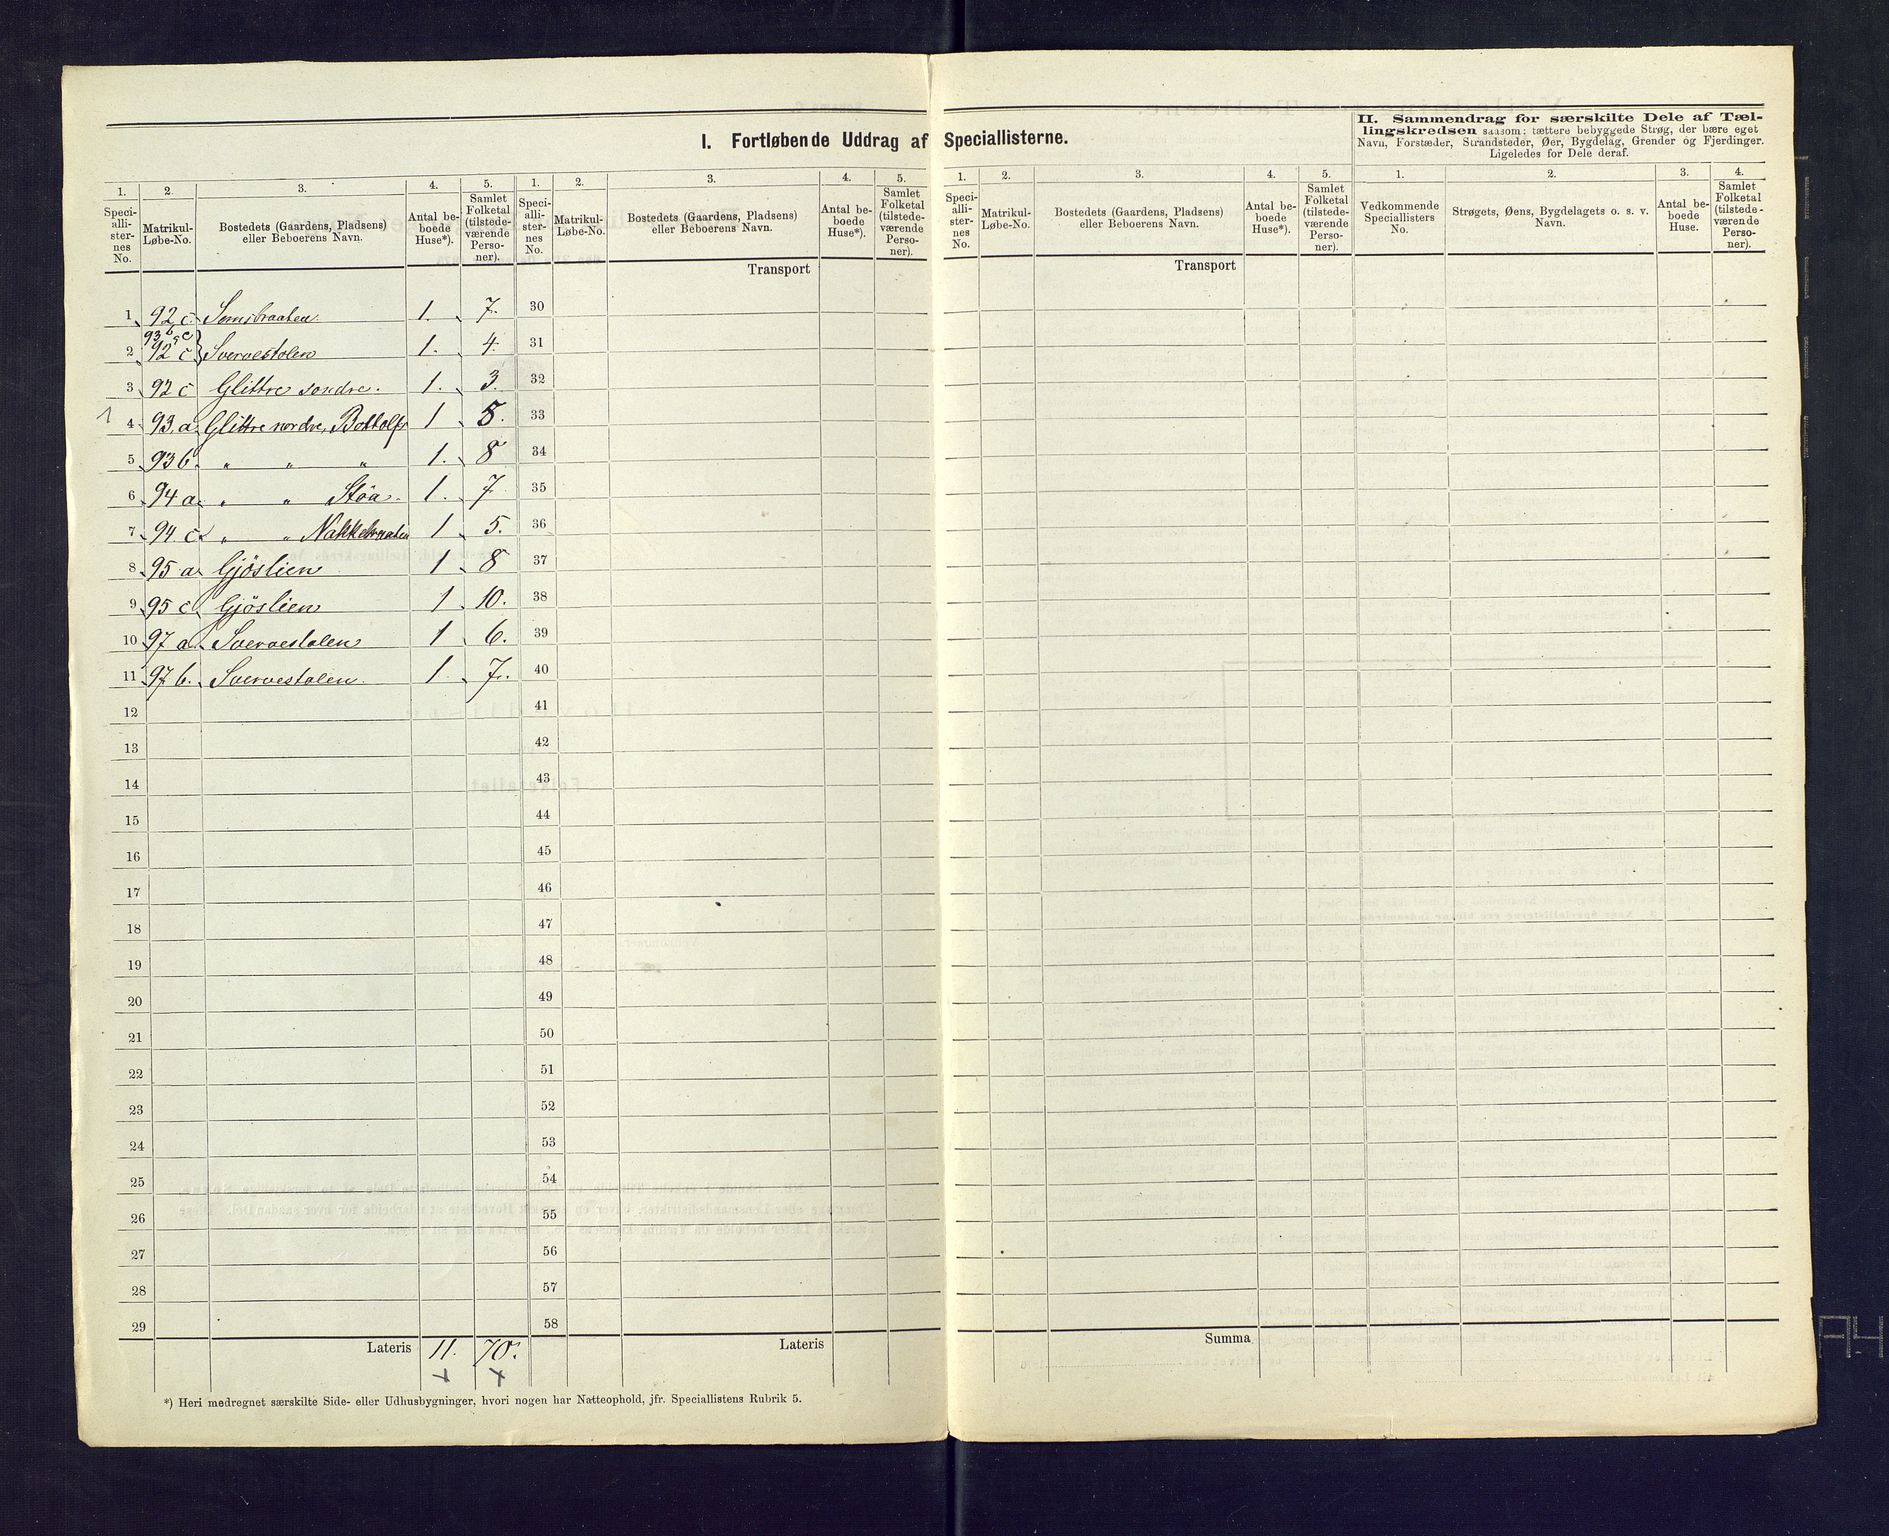 I. Fortløbende Uddrag af Speciallisterne.
II. Sammendrag for særskilte Dele af Tæl-
lingskredsen saasom: tættere bebyggede Strøg, der bære eget
Navn, Forstæder, Strandsteder, Øer, Bygdelag, Grender og Fjerdinger.
Ligeledes for Dele deraf.
1. 2. 3. 4. 5. 1. 2. 3. 4. 5. 1. 2. 3. 4. 5. 1. 2. 3. 4.
Speciallisternes No.
Matrikul-Løbe-No.
Bostedets (Gaardens, Pladsens) eller Beboerens Navn.
Antal beboede Huse*).
Samlet Folketal (tilstedeværende Personer).
Speciallisternes No.
Matrikul-Løbe-No.
Bostedets (Gaardens, Pladsens) eller Beboerens Navn.
Antal beboede Huse*).
Samlet Folketal (tilstedeværende Personer).
Speciallisternes No.
Matrikul-Løbe-No.
Bostedets (Gaardens, Pladsens) eller Beboerens Navn.
Antal beboede Huse*).
Samlet Folketal (tilstedeværende Personer).
Vedkommende Speciallisters No.
Strøgets, Øens, Bygdelagets o. s. v. Navn.
Antal beboede Huse.
Samlet Folketal (tilstedeværende Personer).
Transport
Transport
1 92 c. 1. 7. 30
2 92 c Svervestolen 1. 4. 31
3 92 c Glittre sondre. 1. 3. 32
4 93. a Glittre nordre, Bottolfs 1 5. 33
5 93 b. " " " 1. 8 34
6 94 a " " Stöa. 1. 7 35
7 94 c " " Nakkebraaten 1 5. 36
8 95 a Gjöslien 1 8 37
9 95 c Gjöslien 1 10. 38
10 97 a. Svervestolen 1 6. 39
11 97 b. Svervestolen. 1. 7. 40
12 41
13 42
14 43
15 44
16 45
17 46
18 47
19 48
20 49
21 50
22 51
23 52
24 53
25 54
26 55
27 56
28 57
29 58
Lateris 11. 70.
Lateris
Summa
*) Heri medregnet særskilte Side- eller Udhusbygninger, hvori nogen har Natteophold, jfr. Speciallistens Rubrik 5.